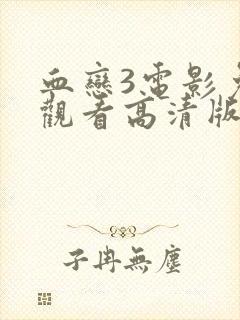 血戀3電影免
觀看高清版
子冉無塵